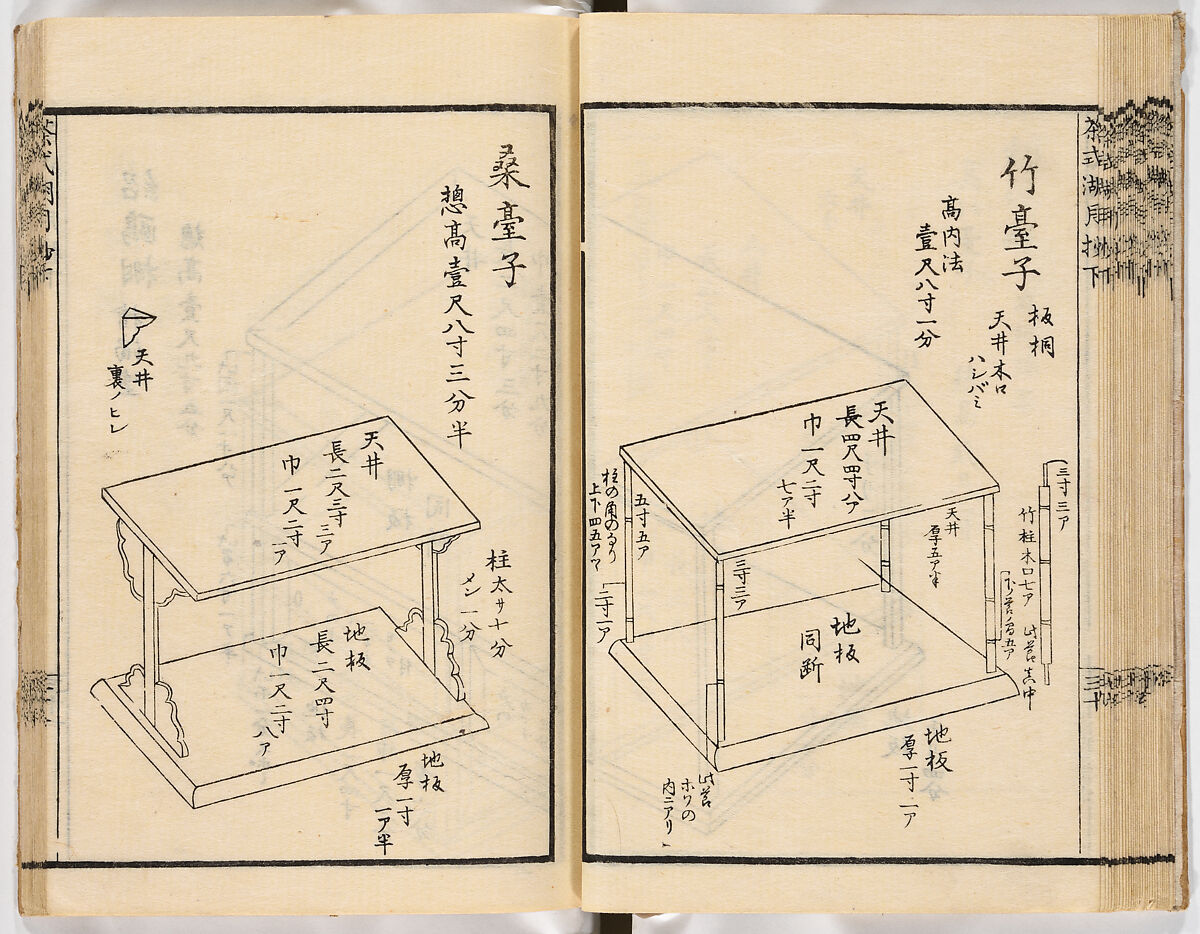 茶式湖月抄下
竹臺子
板桐
天井木口
ハシバミ
高内法
壹尺八寸一分
天井
長四尺四寸八ア
巾一尺二寸
七ア半
三寸三ア
竹柱木口七ア
此莭真中
天井
厚五ア半
五寸五ア
三寸三ア
二寸一ア
地板
同断
地板
厚一寸二ア
此莭
ホゾの
内ニアリ
桑臺子
惣高壹尺八寸三分半
天井
裏ノヒレ
天井
長二尺三寸
三ア
巾一尺二寸
一ア
柱太サ十分
メン一分
地板
長二尺四寸
巾一尺二寸
八ア
地板
厚一寸
一ア半